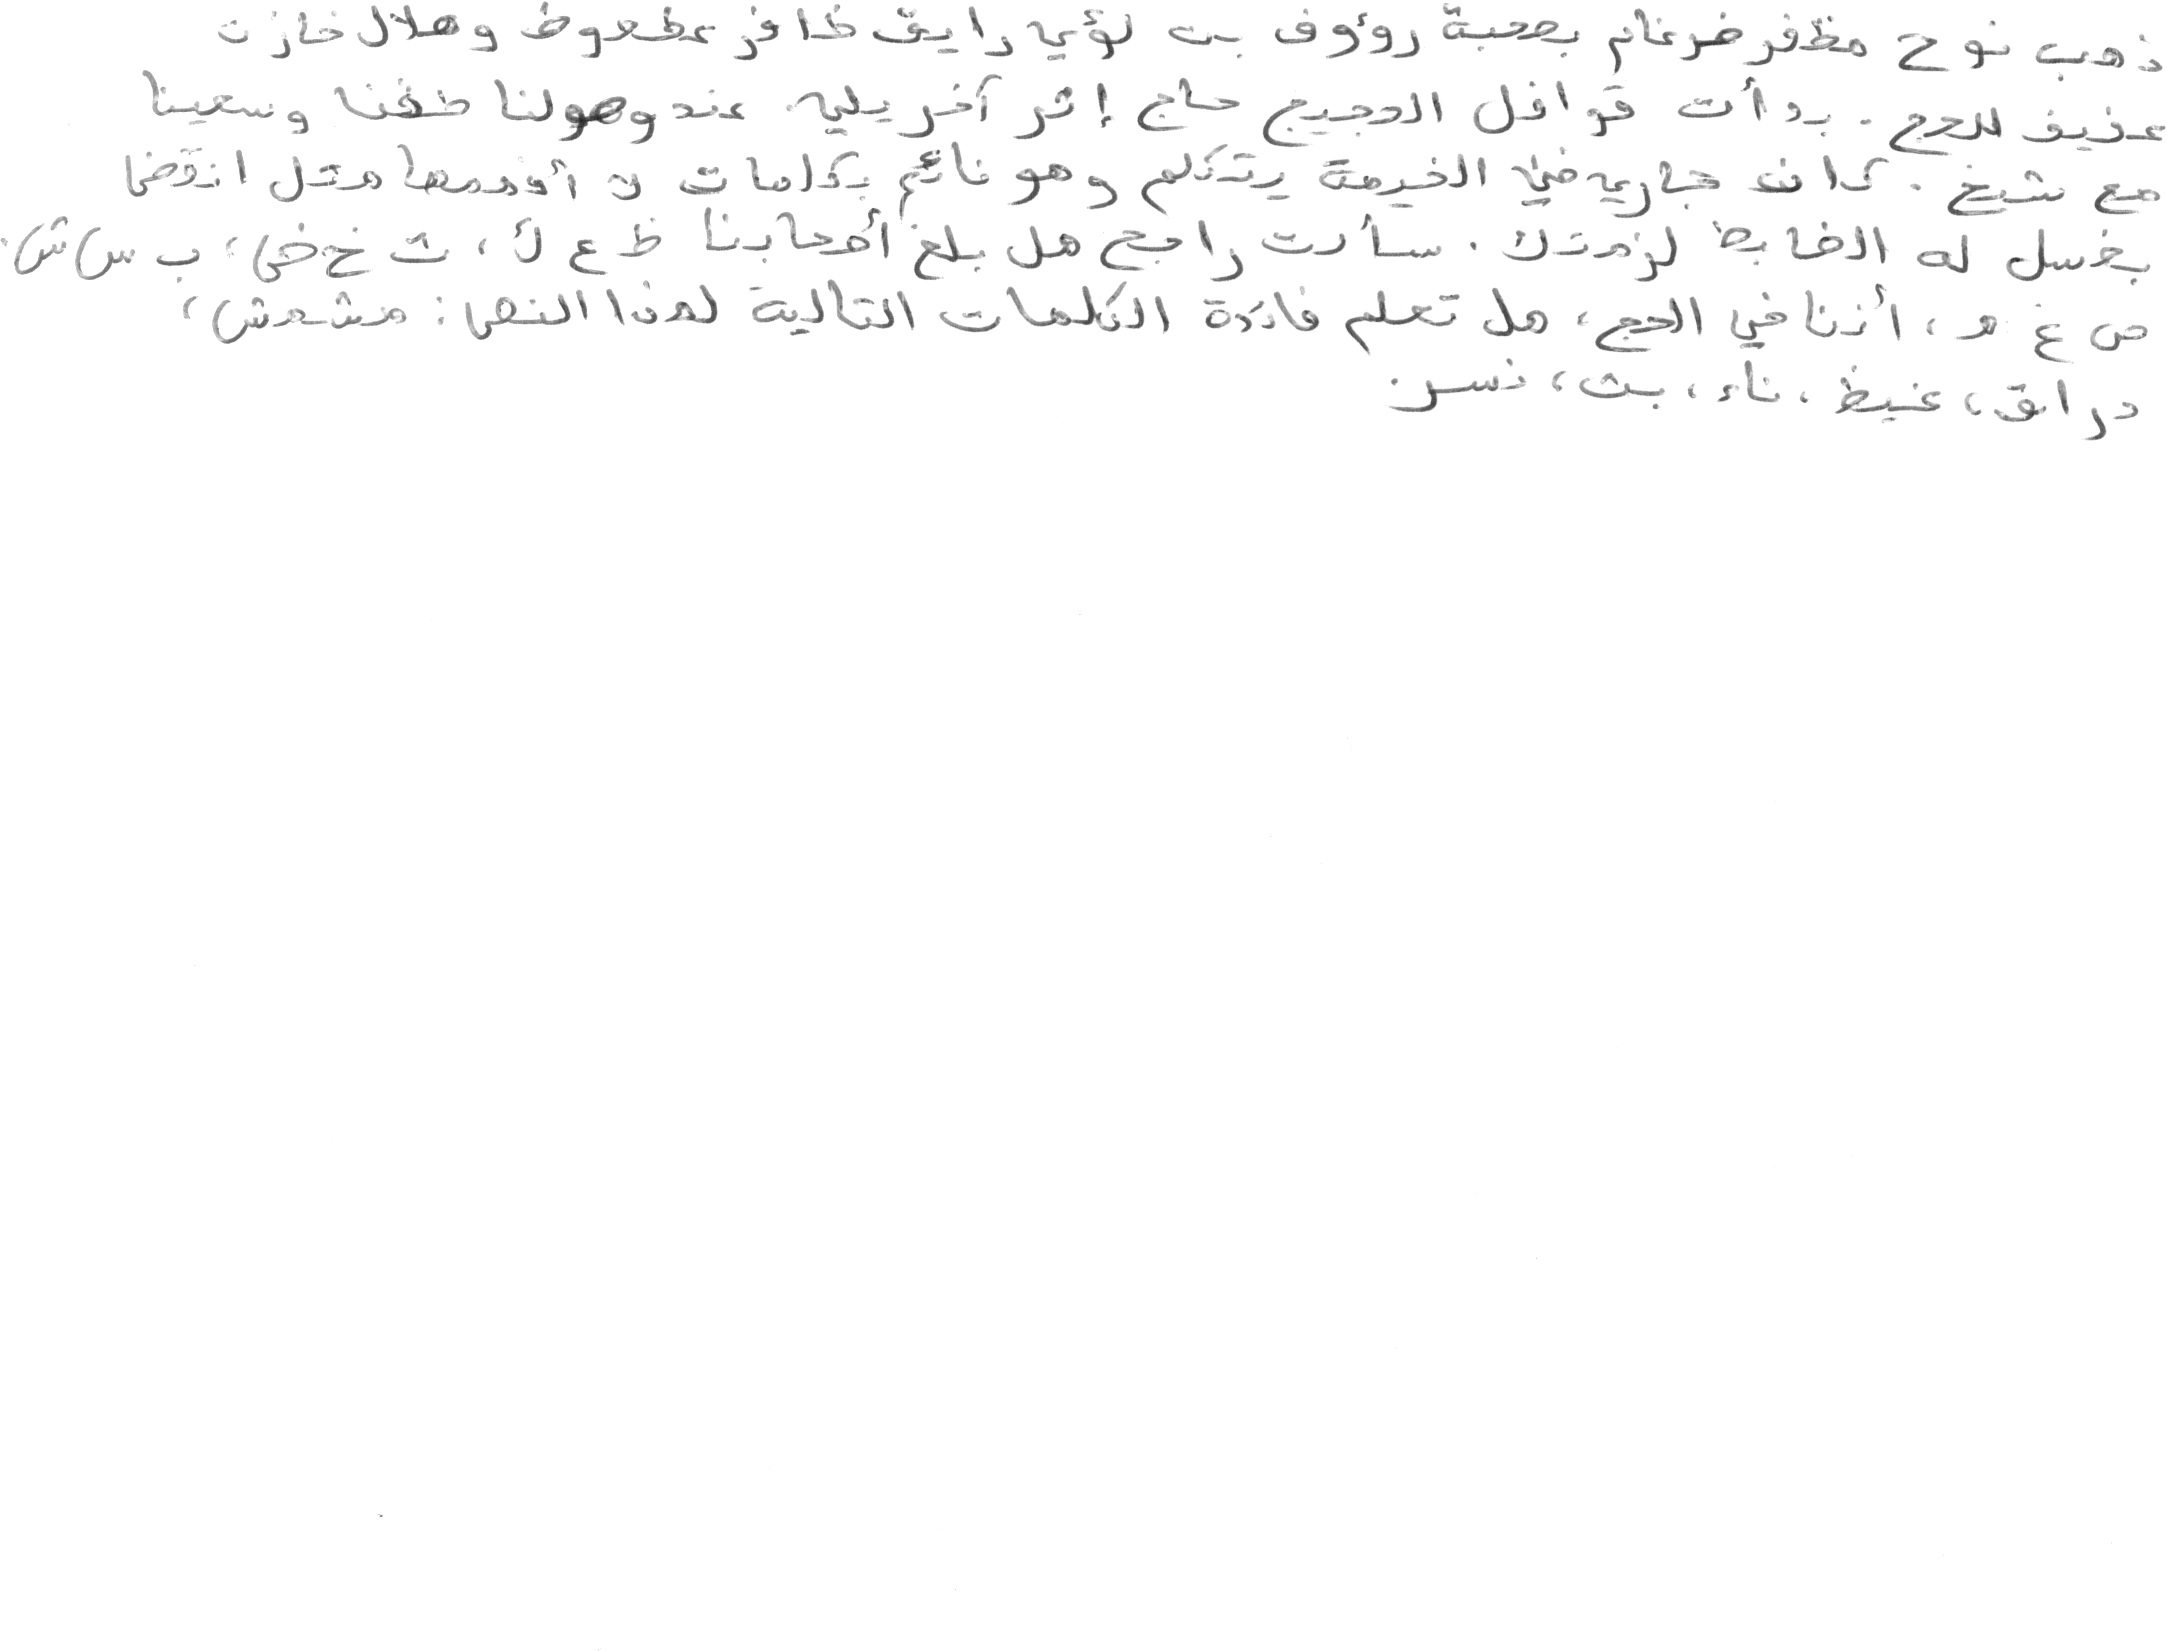 ذهب نوح مظفر ضرغام بصحبة رؤوف بن لؤي رايق ظافر عطعوط وهلال خازن
عفيف للحج. بدأت قوافل الحجيج حاج إثر آخر يليه. عند وصولنا طفنا وسعينا
مع شيخ. كان جاري في الخيمة يتكلم وهو نائم بكلمات لا أفهمها مثل انقضا
بغسل له الضابط لزمتك. سألت راجح هل بلغ أصحابنا ظ ع ك، ث خ ض، ب س ش،
ص غ و، أننا في الحج، هل تعلم فائدة الكلمات التالية لهذا النص: مشمش،
دراق، غيظ، ناء، بث، نسر.